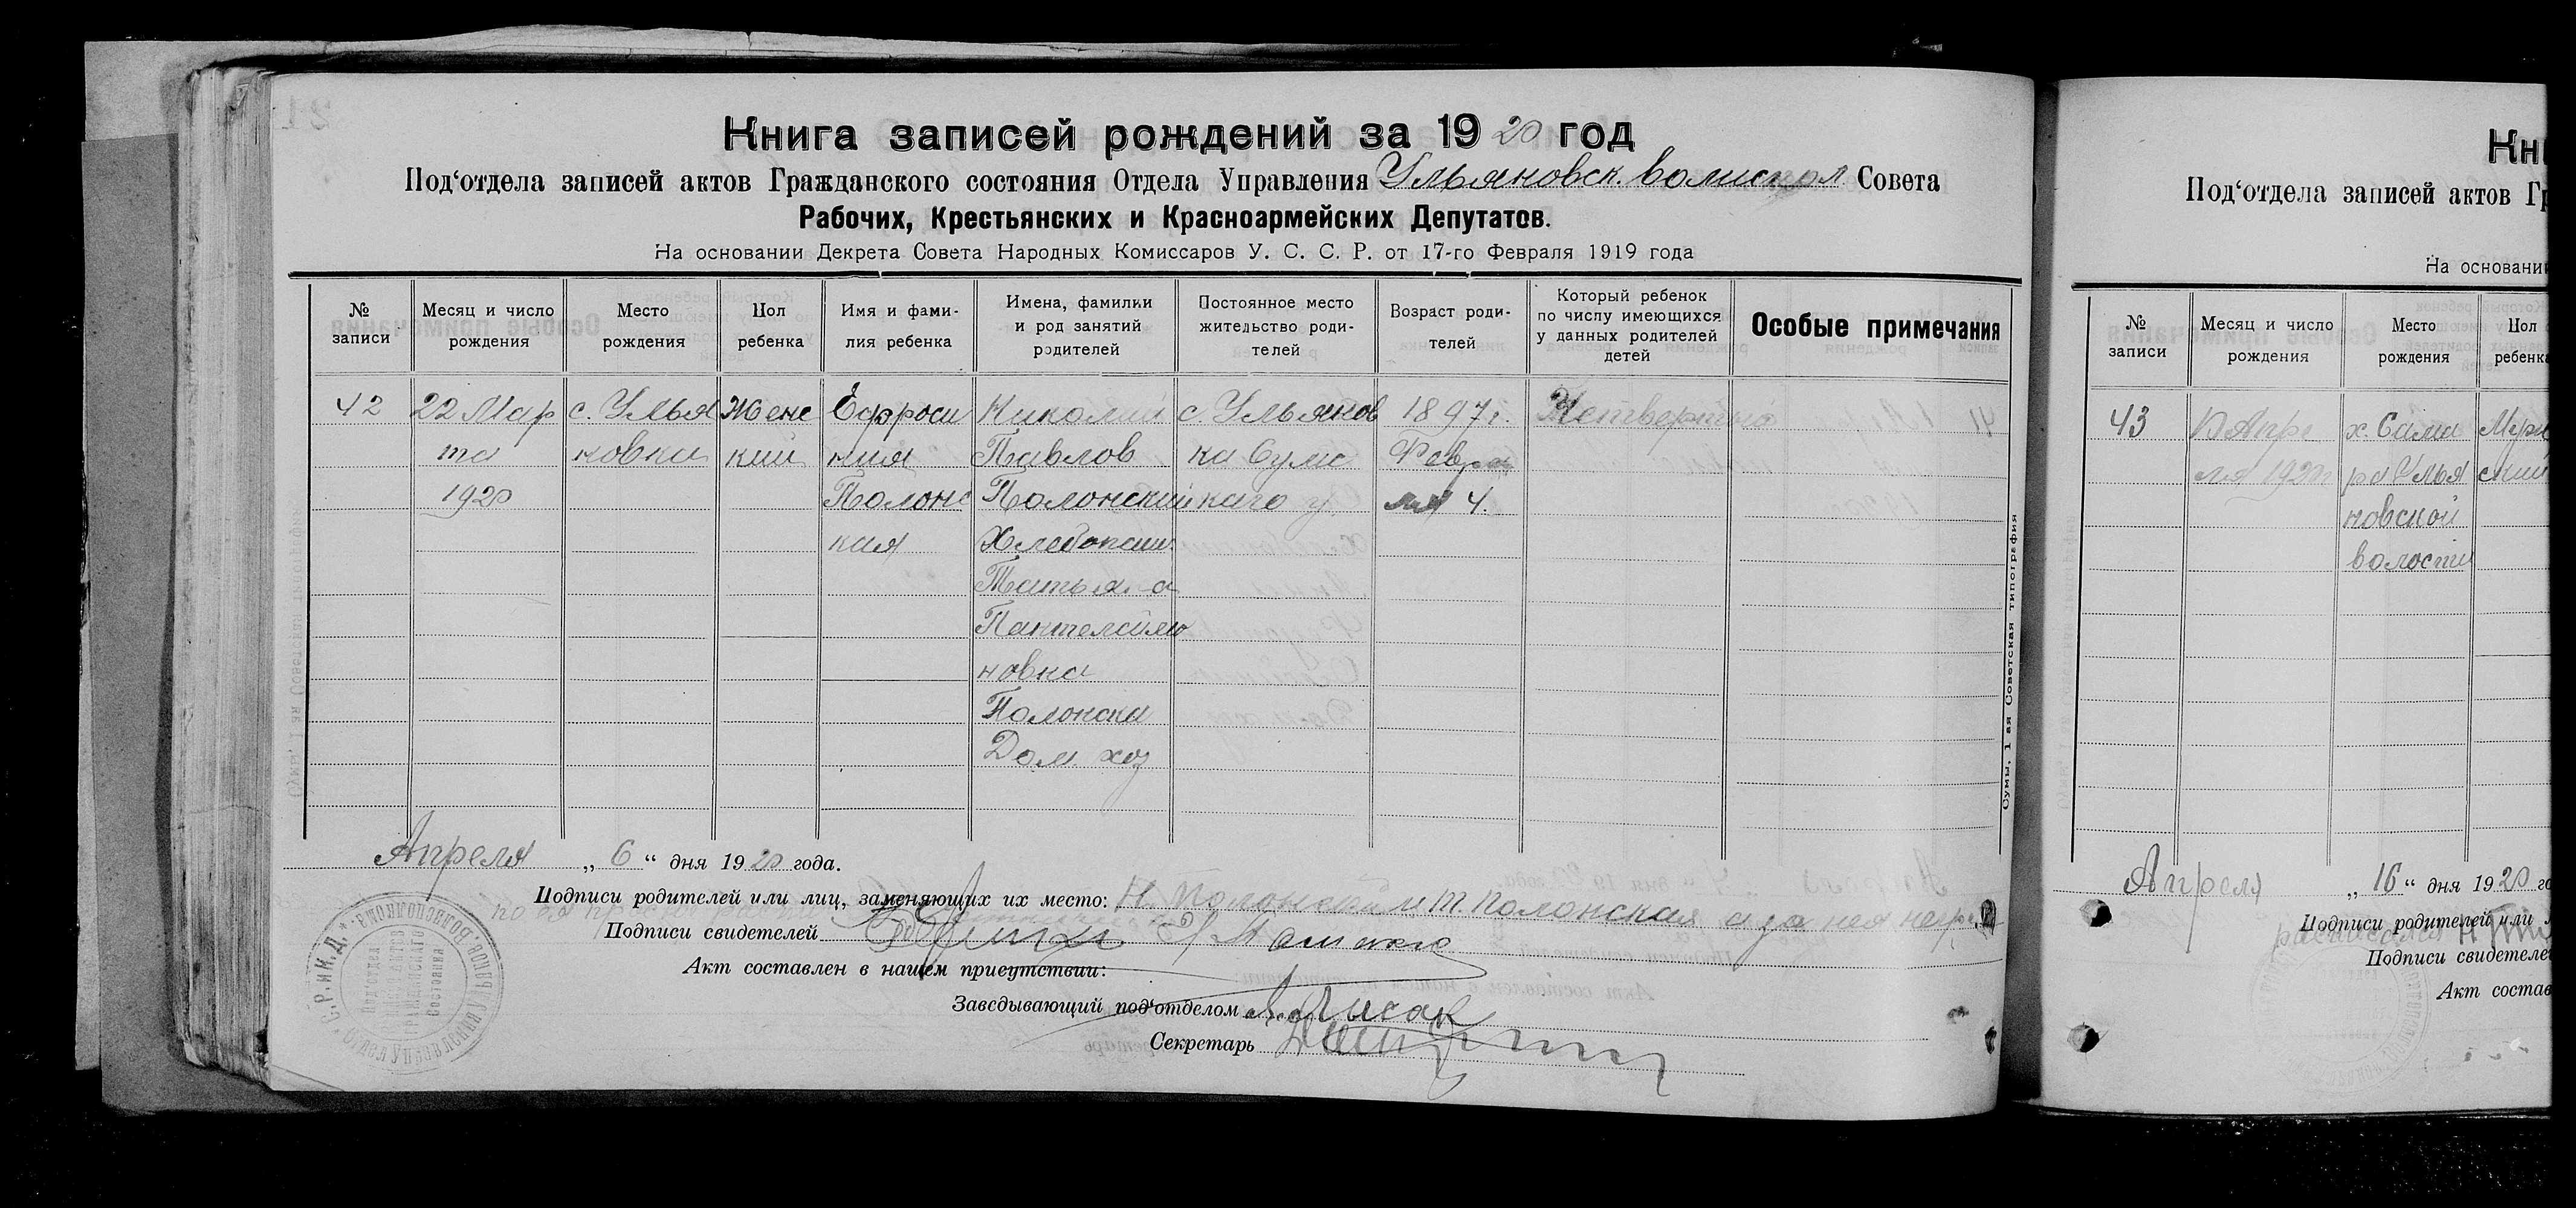 Книга записей рождений за 1920 год
Под‘отдела записей актов Гражданского состояния Отдела Управления Ульяновск. Совета
Рабочих, Крестьянских и Красноармейских Депутатов.
На основании Декрета Совета Народных Комиссаров У. С. С. Р. от 17-го Февраля 1919 года
№ записи
Месяц и число рождения
Место рождения
Пол ребенка
Имя и фами-
лия ребенка
Имена, фамилии
и род занятий
родителей
Постоянное место
жительство роди-
телей
Возраст роди-
телей
Который ребенок
по числу имеющихся
у данных родителей
детей
Особые примечания
42
22 Мар
та
1920
с. Улья
новка
Женс
кий
Ефроси
ния
Полонс
кая
Николай
Павлов
Полонский
Хлебопаш.
Татьяна
Пантелеймо
новна
Полонска
Дом. хоз
с. Ульянов
ка Сумс
каго у
1897 г.
Февра
ля 4.
Четвертый
Апреля „ 6 “ дня 1920 года.
Подписи родителей или лиц, заменяющих их место: Н. Полонский и Т. Полонская а за нея негр.
Подписи свидетелей
Акт составлен в нашем присутствии:
Заведывающий под‘отделом Лысак
Секретарь
Сумы, 1-ая Советская типография
Кн
Под‘отдела записей актов Гр
На основани
№ записи
Месяц и число рождения
Место рождения
Пол ребенка
43
Апре
ля 1920
х. Сама
ра Улья
новской
волости
Муж
ский
Апреля „ 16 “ дня 1920 го
Подписи родителей или л
расписался Н
Подписи свидетеле
Акт состав